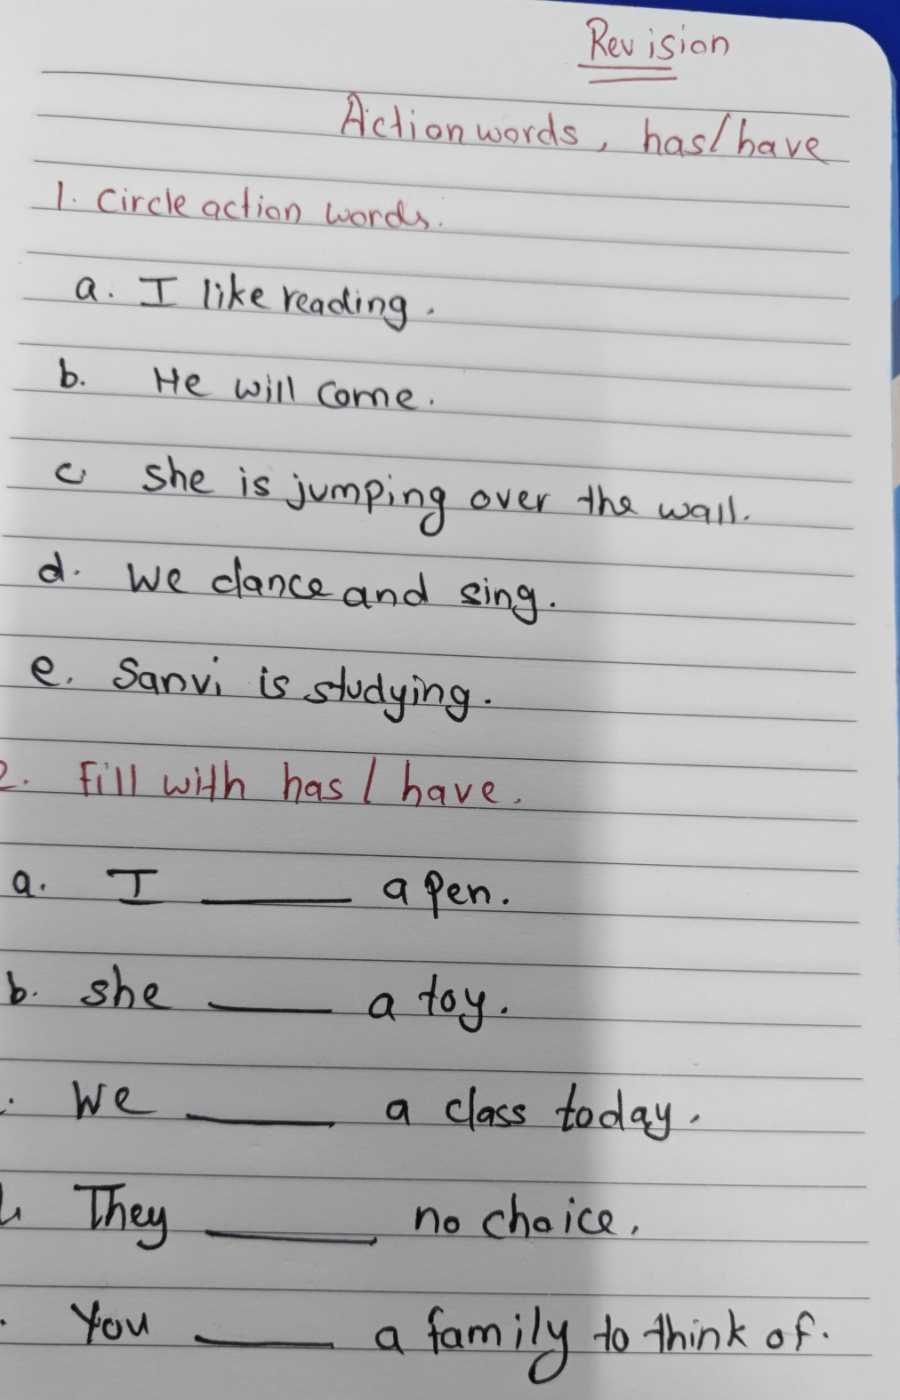 Revision
Action words, has/have
1. Circle action words.
a. I like reading.
b. He will come.
c she is jumping over the wall.
d. We dance and sing.
e. Sanvi is studying.
2. Fill with has/have.
a. I ____ a pen.
b. she ____ a toy.
. We ____ a class today.
They ____ no choice.
. You ____ a family to think of.